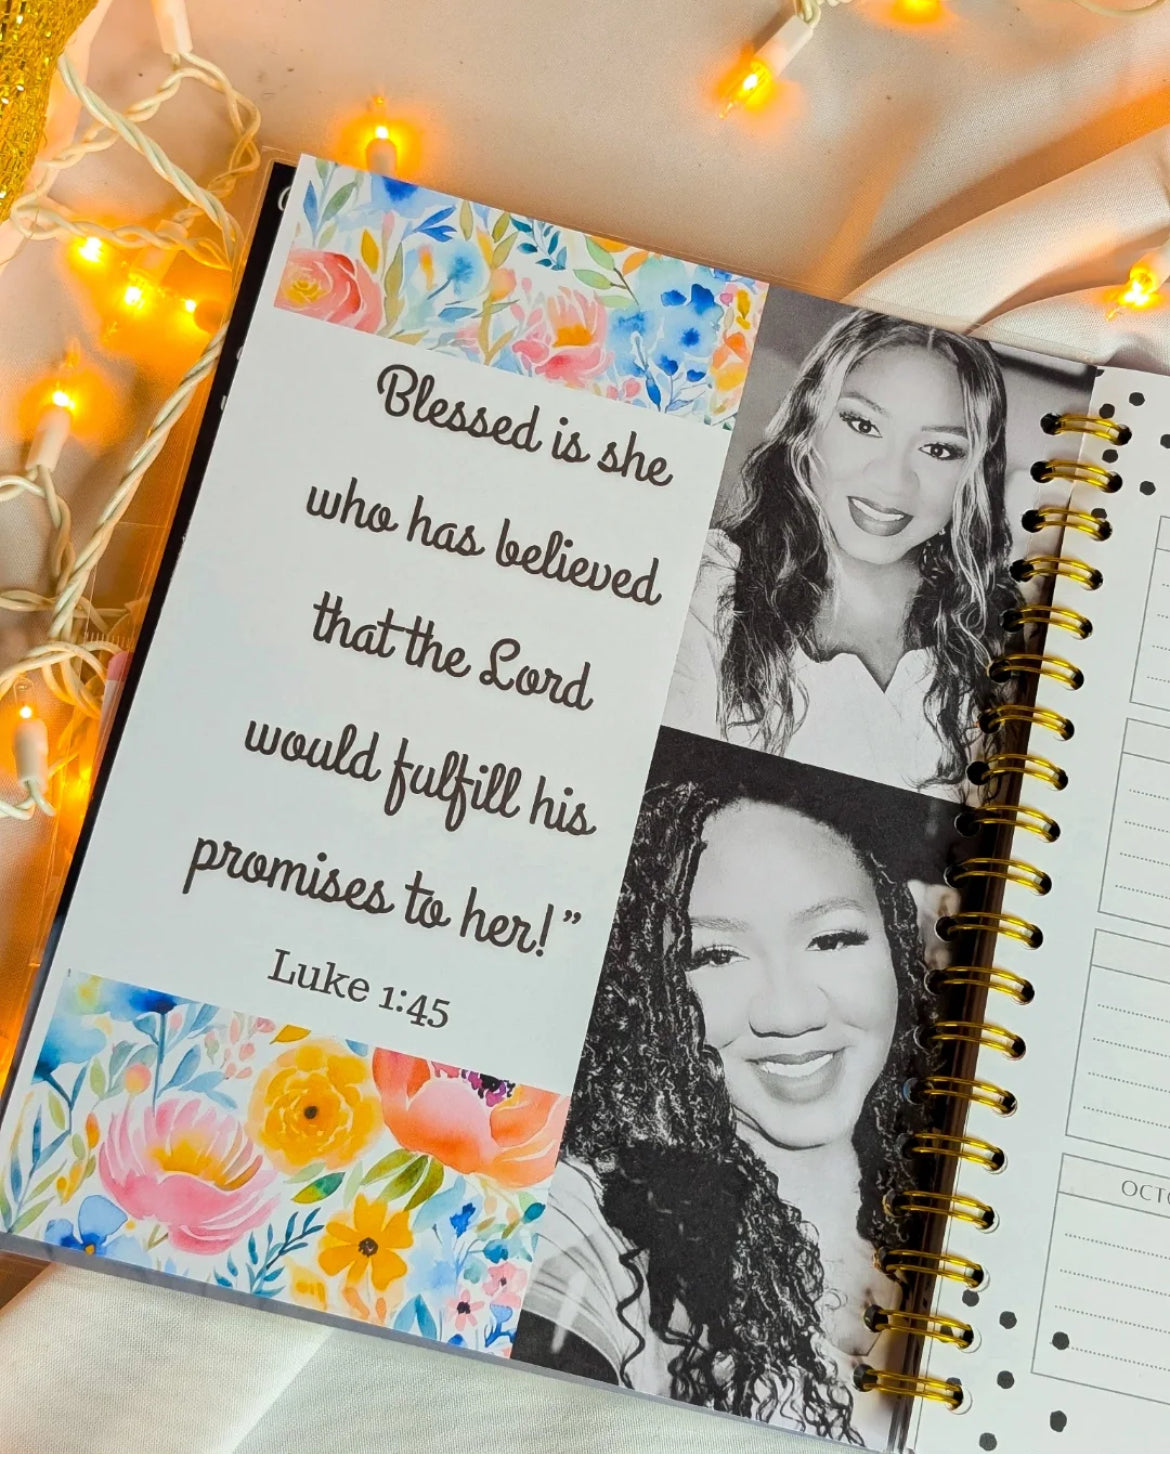 Blessed is she
who has believed
that the Lord
would fulfill his
promises to her!”
Luke 1:45
OCT